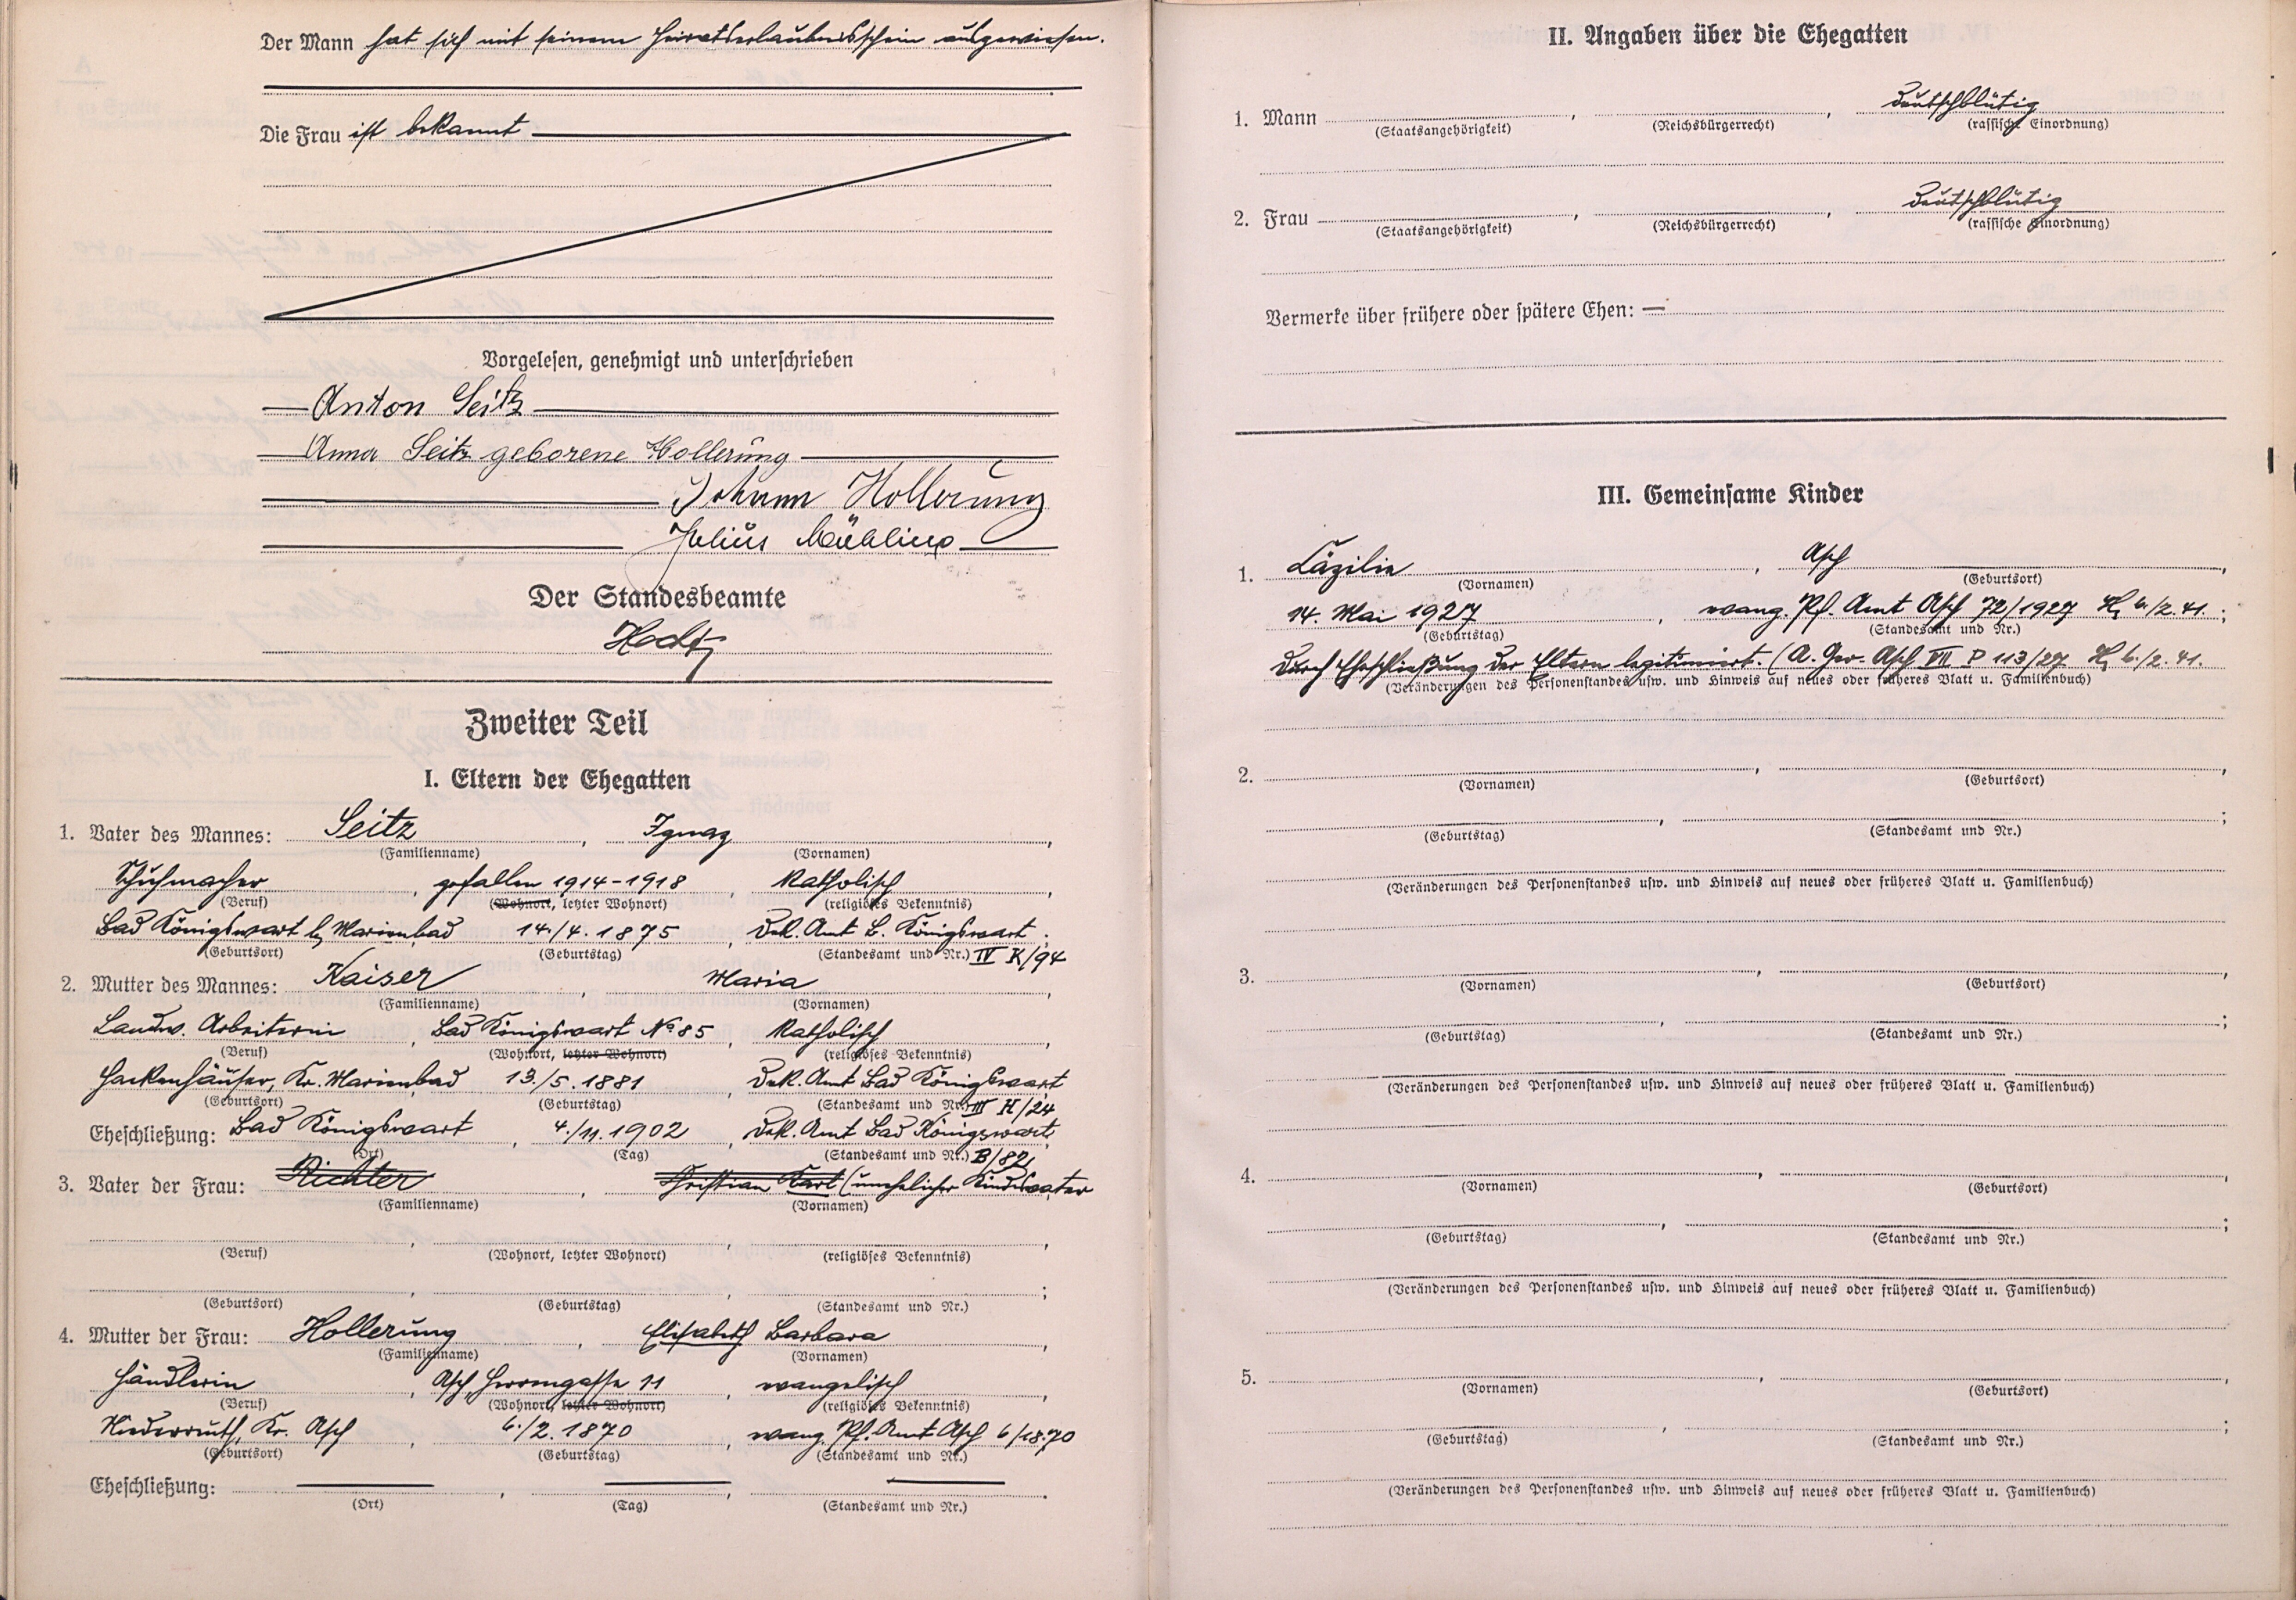 Der Mann hat sich mit seinem Heiratserlaubnisschein ausgewiesen.
Die Frau ist bekannt
Vorgelesen, genehmigt und unterschrieben
Anton Seitz
Anna Seitz geborene Hollerung
Johann Hollerung
Julius
Der Standesbeamte
Zweiter Teil
I. Eltern der Ehegatten
1. Vater des Mannes: Seitz, Ignaz,
(Familienname) (Vornamen)
Schuhmacher, gefallen 1914-1918, katholisch,
(Beruf) (Wohnort, letzter Wohnort) (religiöses Bekenntnis)
Bad Königswart b. Marienbad 14./4. 1875, Dek. Amt B. Königswart;
(Geburtsort) (Geburtstag) (Standesamt und Nr.) IV K/94
2. Mutter des Mannes: Kaiser, Maria,
(Familienname) (Vornamen)
Landw. Arbeiterin, Bad Königswart No 85, katholisch,
(Beruf) (Wohnort, letzter Wohnort) (religiöses Bekenntnis)
Hackenhäuser, Kr. Marienbad 13./5. 1881, Dek. Amt Bad Königswart
(Geburtsort) (Geburtstag) (Standesamt und Nr.) III H/24
Eheschließung: Bad Königswart, 4./11. 1902, Dek. Amt Bad Königswart,
(Ort) (Tag) (Standesamt und Nr.) B/82,
3. Vater der Frau: Richter, Christian Karl (unehelicher Kindesvater
(Familienname) (Vornamen)
(Beruf) (Wohnort, letzter Wohnort) (religiöses Bekenntnis)
(Geburtsort) (Geburtstag) (Standesamt und Nr.)
4. Mutter der Frau: Hollerung, Elisabeth Barbara,
(Familienname) (Vornamen)
Händlerin, Asch, Herrengasse 11, evangelisch,
(Beruf) (Wohnort, letzter Wohnort) (religiöses Bekenntnis)
Niederreuth, Kr. Asch, 6./2. 1870, evang. Pf. Amt Asch 6/1870
(Geburtsort) (Geburtstag) (Standesamt und Nr.)
Eheschließung: —, —, —.
(Ort) (Tag) (Standesamt und Nr.)
II. Angaben über die Ehegatten
1. Mann, , deutschblütig
(Staatsangehörigkeit) (Reichsbürgerrecht) (rassische Einordnung)
2. Frau, , deutschblütig
(Staatsangehörigkeit) (Reichsbürgerrecht) (rassische Einordnung)
Vermerke über frühere oder spätere Ehen: —
III. Gemeinsame Kinder
1. Cäzilie, Asch,
(Vornamen) (Geburtsort)
14. Mai 1927, evang. Pf. Amt Asch 72/1927 6./2. 41.;
(Geburtstag) (Standesamt und Nr.)
durch Eheschließung der Eltern legitimiert. (A. Ger. Asch VII P 113/27 6./2. 41.
(Veränderungen des Personenstandes usw. und Hinweis auf neues oder früheres Blatt u. Familienbuch)
2.
(Vornamen) (Geburtsort)
(Geburtstag) (Standesamt und Nr.)
(Veränderungen des Personenstandes usw. und Hinweis auf neues oder früheres Blatt u. Familienbuch)
3.
(Vornamen) (Geburtsort)
(Geburtstag) (Standesamt und Nr.)
(Veränderungen des Personenstandes usw. und Hinweis auf neues oder früheres Blatt u. Familienbuch)
4.
(Vornamen) (Geburtsort)
(Geburtstag) (Standesamt und Nr.)
(Veränderungen des Personenstandes usw. und Hinweis auf neues oder früheres Blatt u. Familienbuch)
5.
(Vornamen) (Geburtsort)
(Geburtstag) (Standesamt und Nr.)
(Veränderungen des Personenstandes usw. und Hinweis auf neues oder früheres Blatt u. Familienbuch)